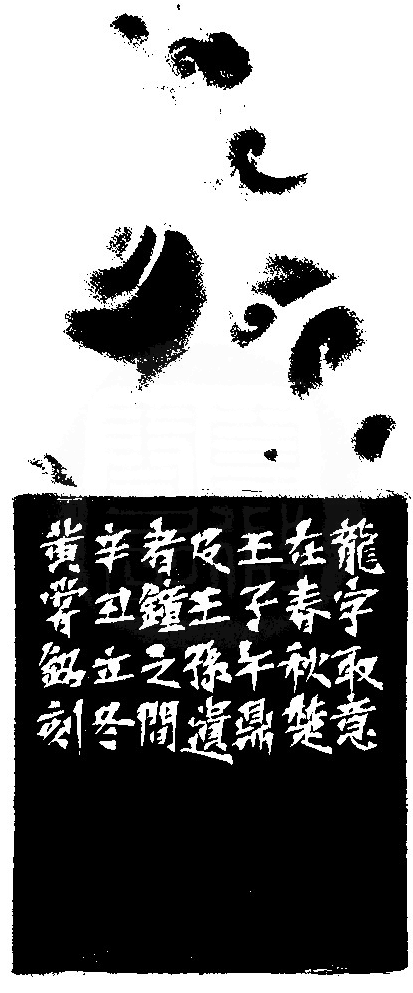 龍字取意
在春秋楚
王子午鼎
及王孫遺
者鐘之間
辛丑立冬
黃嘗銘刻